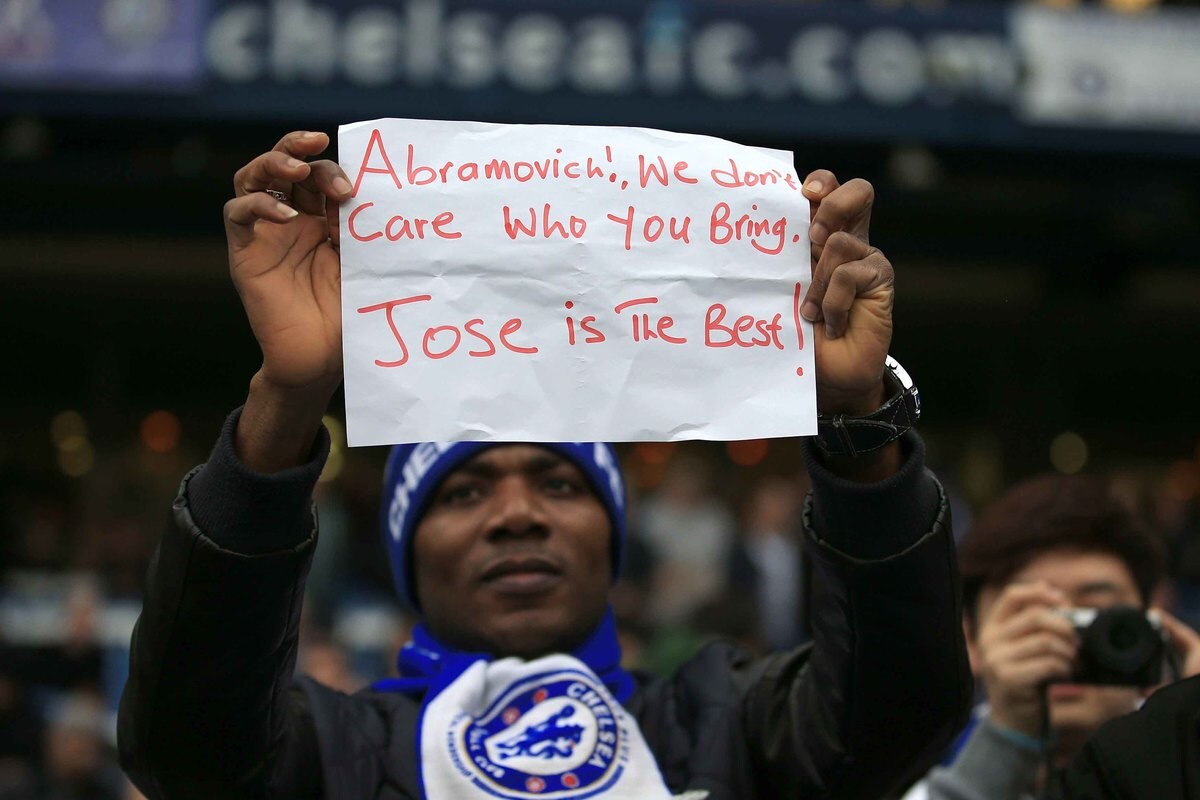 chelseafc.com
Abramovich!, We don't
Care Who You Bring.
Jose is The Best!
CHE
CHELSEA